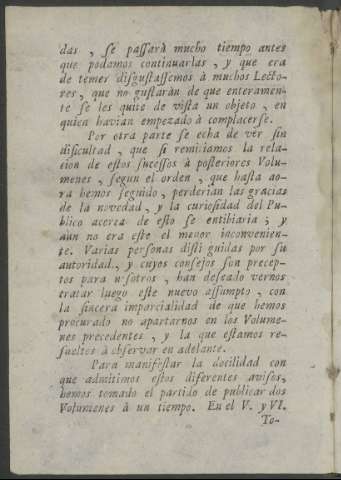 das, se passarà mucho tiempo antes
que podamos continuarlas, y que era
de temer disgustassemos à muchos Lecto-
res, que no gustaràn de que enteramen-
te se les quite de vista un objeto, en
quien havian empezado à complacerse.
Por otra parte se echa de vèr sin
dificultad, que si remitiamos la rela-
cion de estos sucessos à posteriores Volu-
menes, segun el orden, que hasta ao-
ra hemos seguido, perderian las gracias
de la novedad, y la curiosidad del Pu-
blico acerca de esto se entibiaria; y
aun no era este el menor inconvenien-
te. Varias personas disti guidas por su
autoridad, y cuyos consejos son precep-
tos para nosotros, han deseado vernos
tratar luego este nuevo assumpto, con
la sincera imparcialidad de que hemos
procurado no apartarnos en los Volume-
nes precedentes, y la que estamos re-
sueltos à observar en adelante.
Para manifestar la docilidad con
que admitimos estos diferentes avisos,
hemos tomado el partido de publicar dos
Volumenes à un tiempo. En el V. y VI.
To-